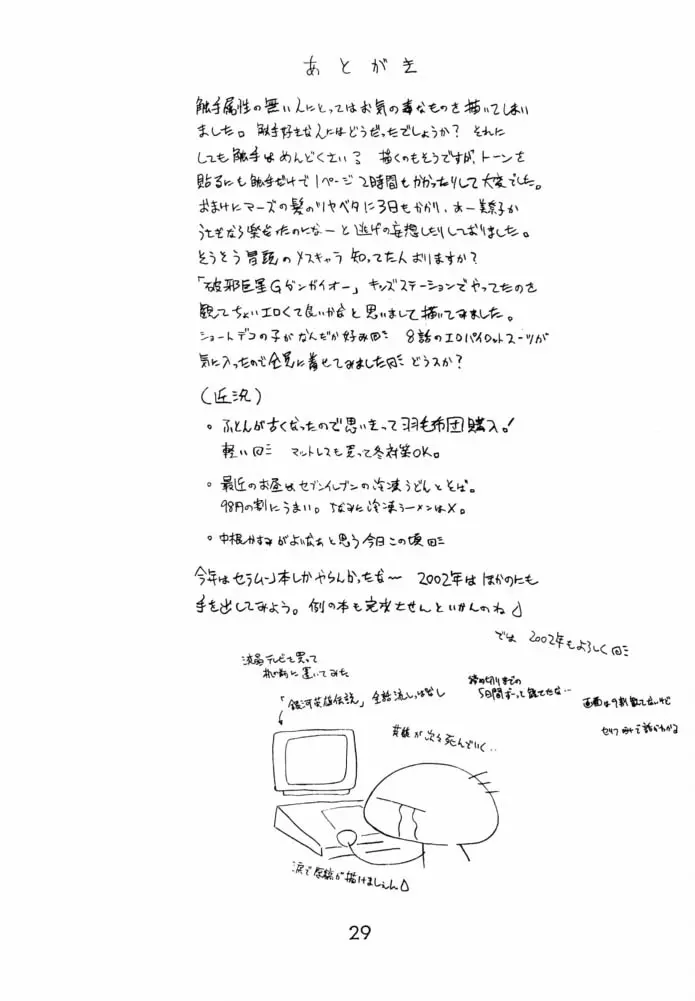 あとがき
触手属性の無い人にとってはお気の毒なものを描いてしまい
ました。触手好きな人にはどうだったでしょうか？それに
しても触手はめんどくさい？描くのもそうですが、トーンを
貼るにも触手だけで1ページ2時間もかかったりして大変でした。
おまけにマーズの髪のツヤベタに3日もかかり、あー美奈子か
うさぎなら楽だったのになーと逃げの妄想したりしておりました。
そうそう冒頭のメスキャラ知ってた人おりますか？
「破邪巨星Gダンガイオー」キッズステーションでやってたのを
観てちょいエロくて良いかなと思いまして描いてみました。
ショートデコの子がなんだか好み 8話のエロパイロットスーツが
気に入ったので全員に着せてみました どうスか？
（近況）
。ふとんが古くなったので思いきって羽毛布団購入！
軽い マットレスも買って冬対策OK。
。最近のお昼はセブンイレブンの冷凍うどんとそば。
98円の割にうまい。ちなみに冷凍ラーメンは×。
。中根かすみがよいなぁと思う今日この頃
今年はセラムン本しかやらんかったな〜 2002年はほかのにも
手を出してみよう。例の本も完成させんといかんのね
では 2002年もよろしく
液晶テレビを買って
机の前に置いてみた
「銀河英雄伝説」全話流しっぱなし
締め切りまでの
5日間ずーっと観てたな…
画面は9割観てないけど
セリフだけで話がわかる
英雄が次々死んでいく…
涙で原稿が描けましぇん
29